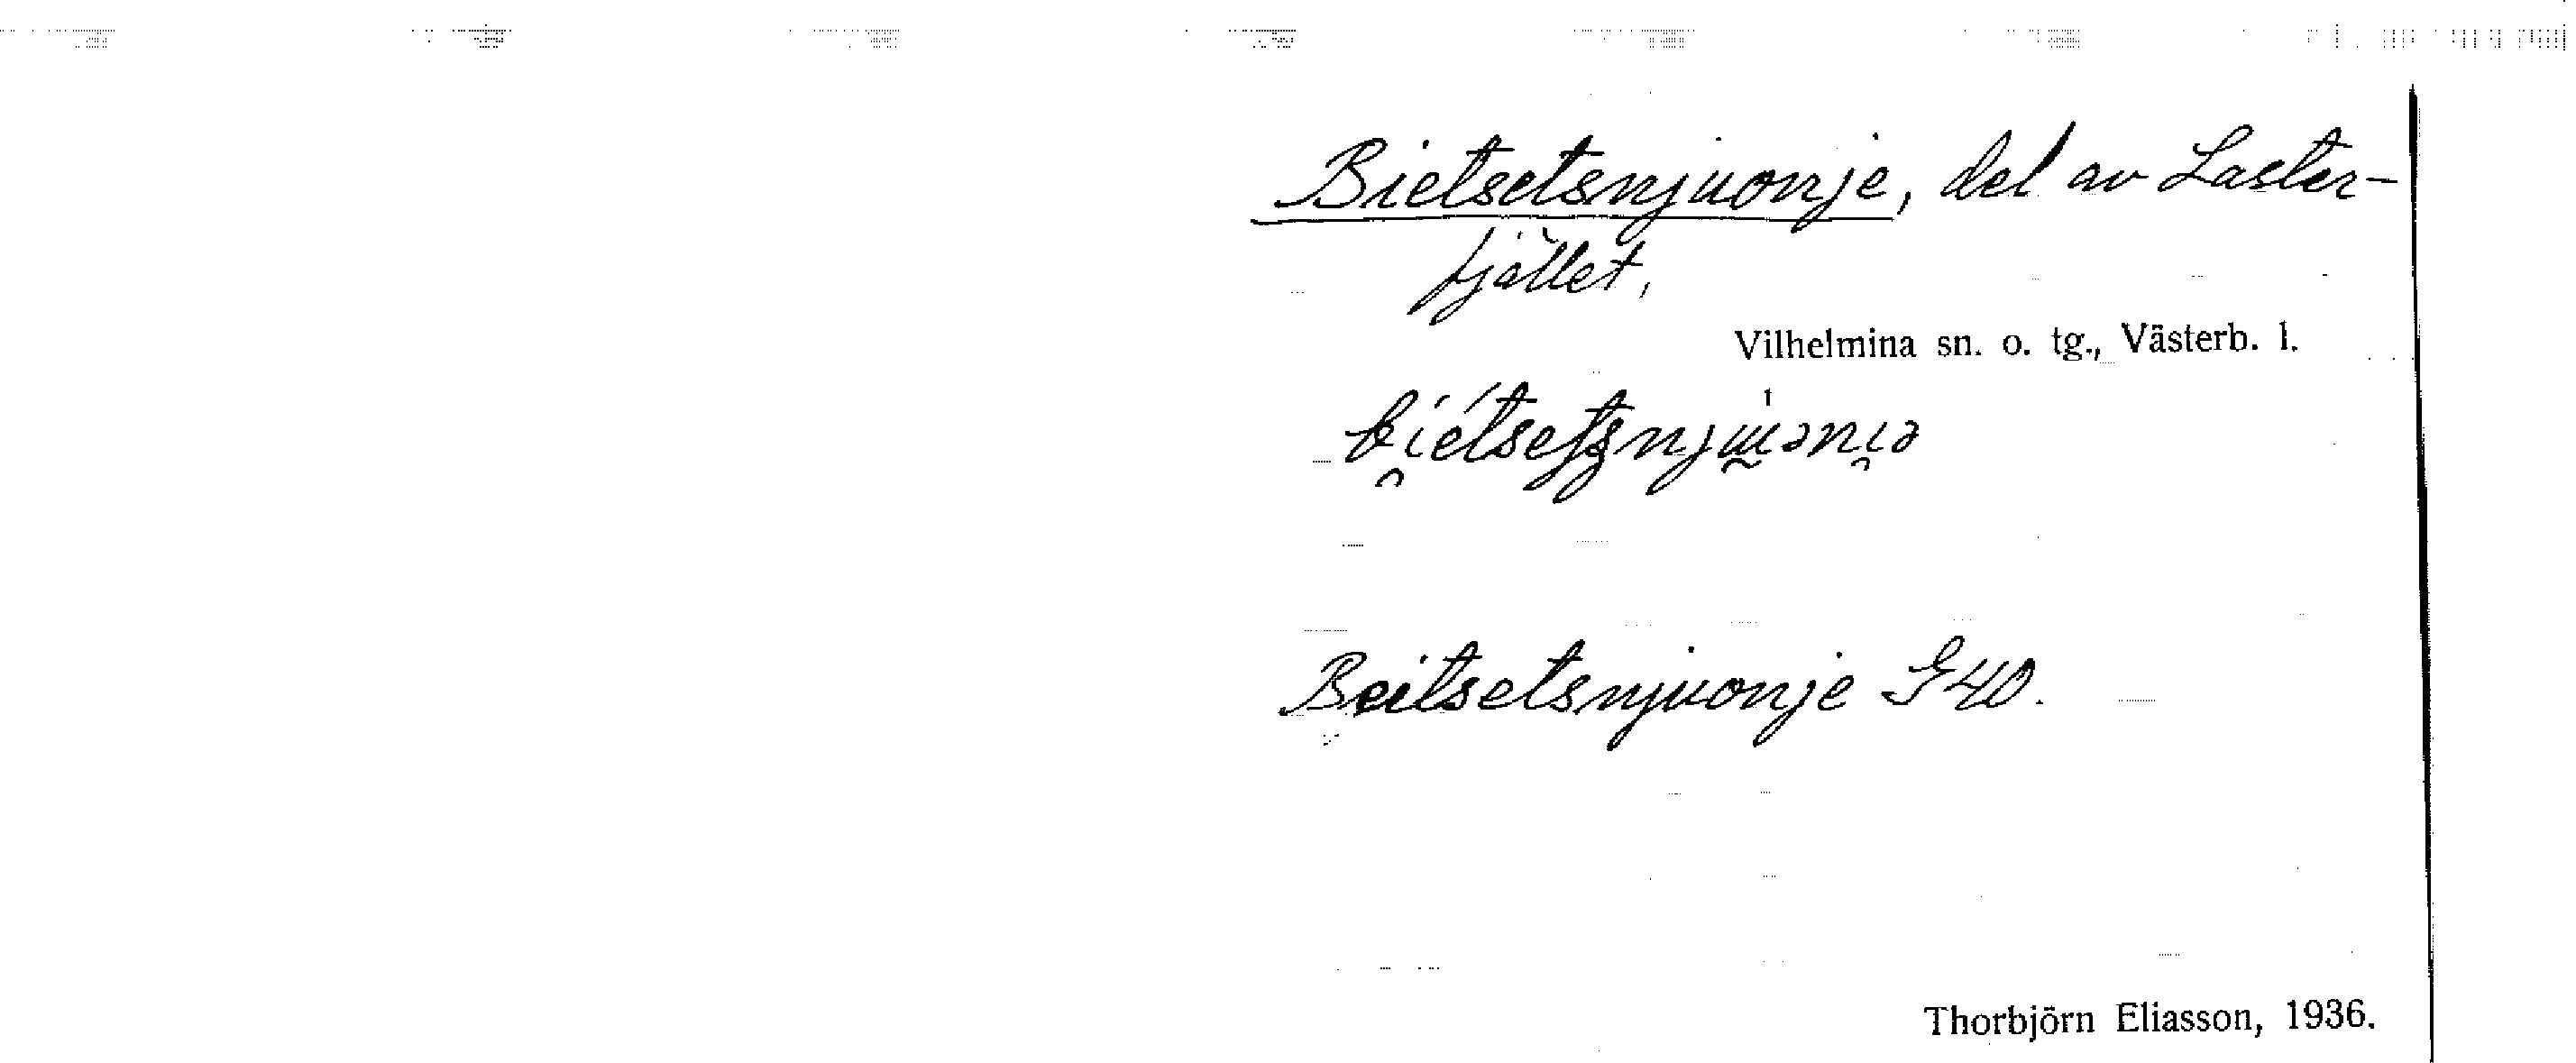 Bietsetsnjuonje, del av Laster-
fjället,
Vilhelmina sn. o. tg., Västerb. l.
Beitsetsnjuonje G40.
Thorbjörn Eliasson, 1936.